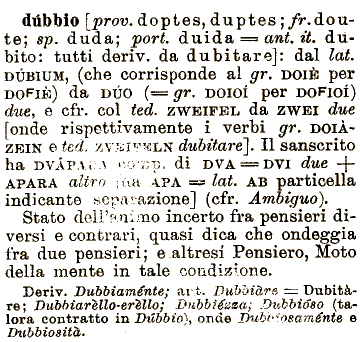 dúbbio [prov. doptes, duptes; fr. dou-
te; sp. duda; port. duida = ant. it. dù-
bito: tutti deriv. da dubitare]: dal lat.
DÚBIUM, (che corrisponde al gr. DOIÈ per
DOFIÈ) da DÚO (= gr. DOIOÍ per DOFIOÍ)
due, e cfr. col ted. ZWEIFEL da ZWEI due
[onde rispettivamente i verbi gr. DOIÁ-
ZEIN e ted. ZVEIFELN dubitare]. Il sanscrito
ha DVÂPARA comp. di DVA = DVI due +
APARA altro [da APA = lat. AB particella
indicante separazione] (cfr. Ambiguo).
Stato dell'animo incerto fra pensieri di-
versi e contrari, quasi dica che ondeggia
fra due pensieri; e altresí Pensiero, Moto
della mente in tale condizione.
Deriv. Dubbiaménte; ant. Dubbiàre = Dubità-
re; Dubbiarèllo-erèllo; Dubbiézza; Dubbióso (ta-
lora contratto in Dúbbio), onde Dubbiosaménte e
Dubbiosità.